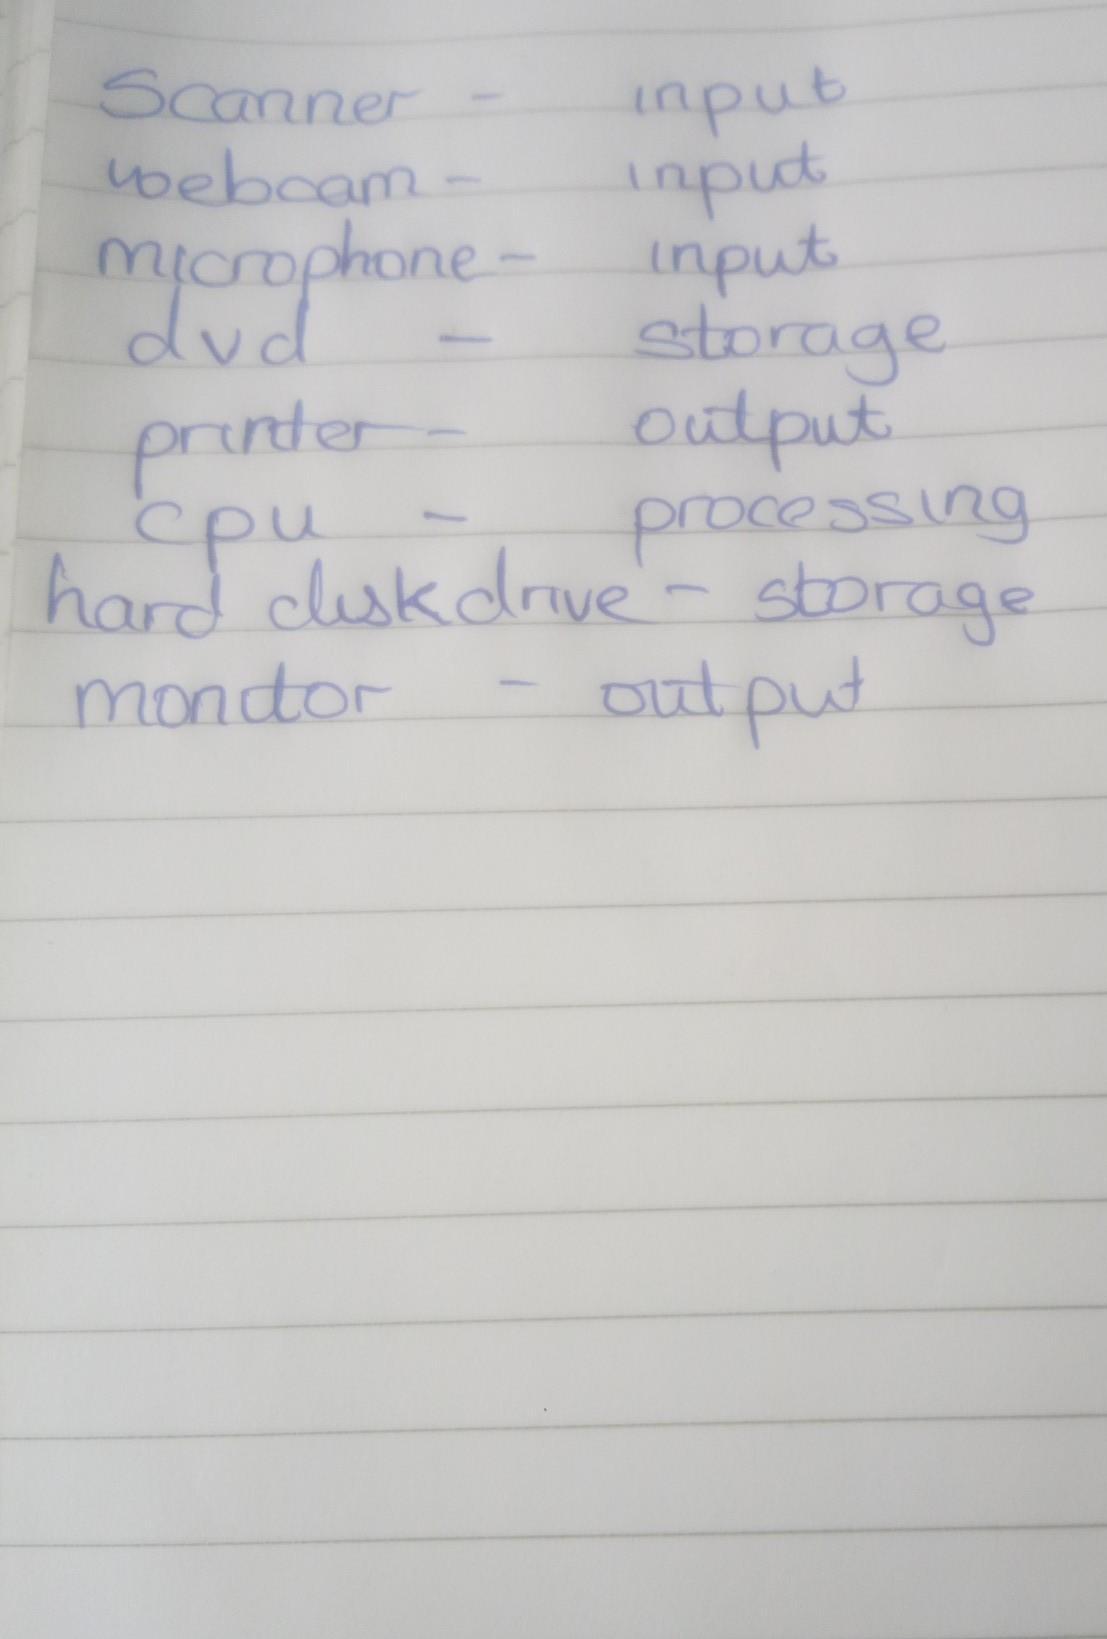 Scanner - input
webcam - input
microphone - input
dvd - storage
printer - output
cpu - processing
hard disk drive - storage
monitor - output